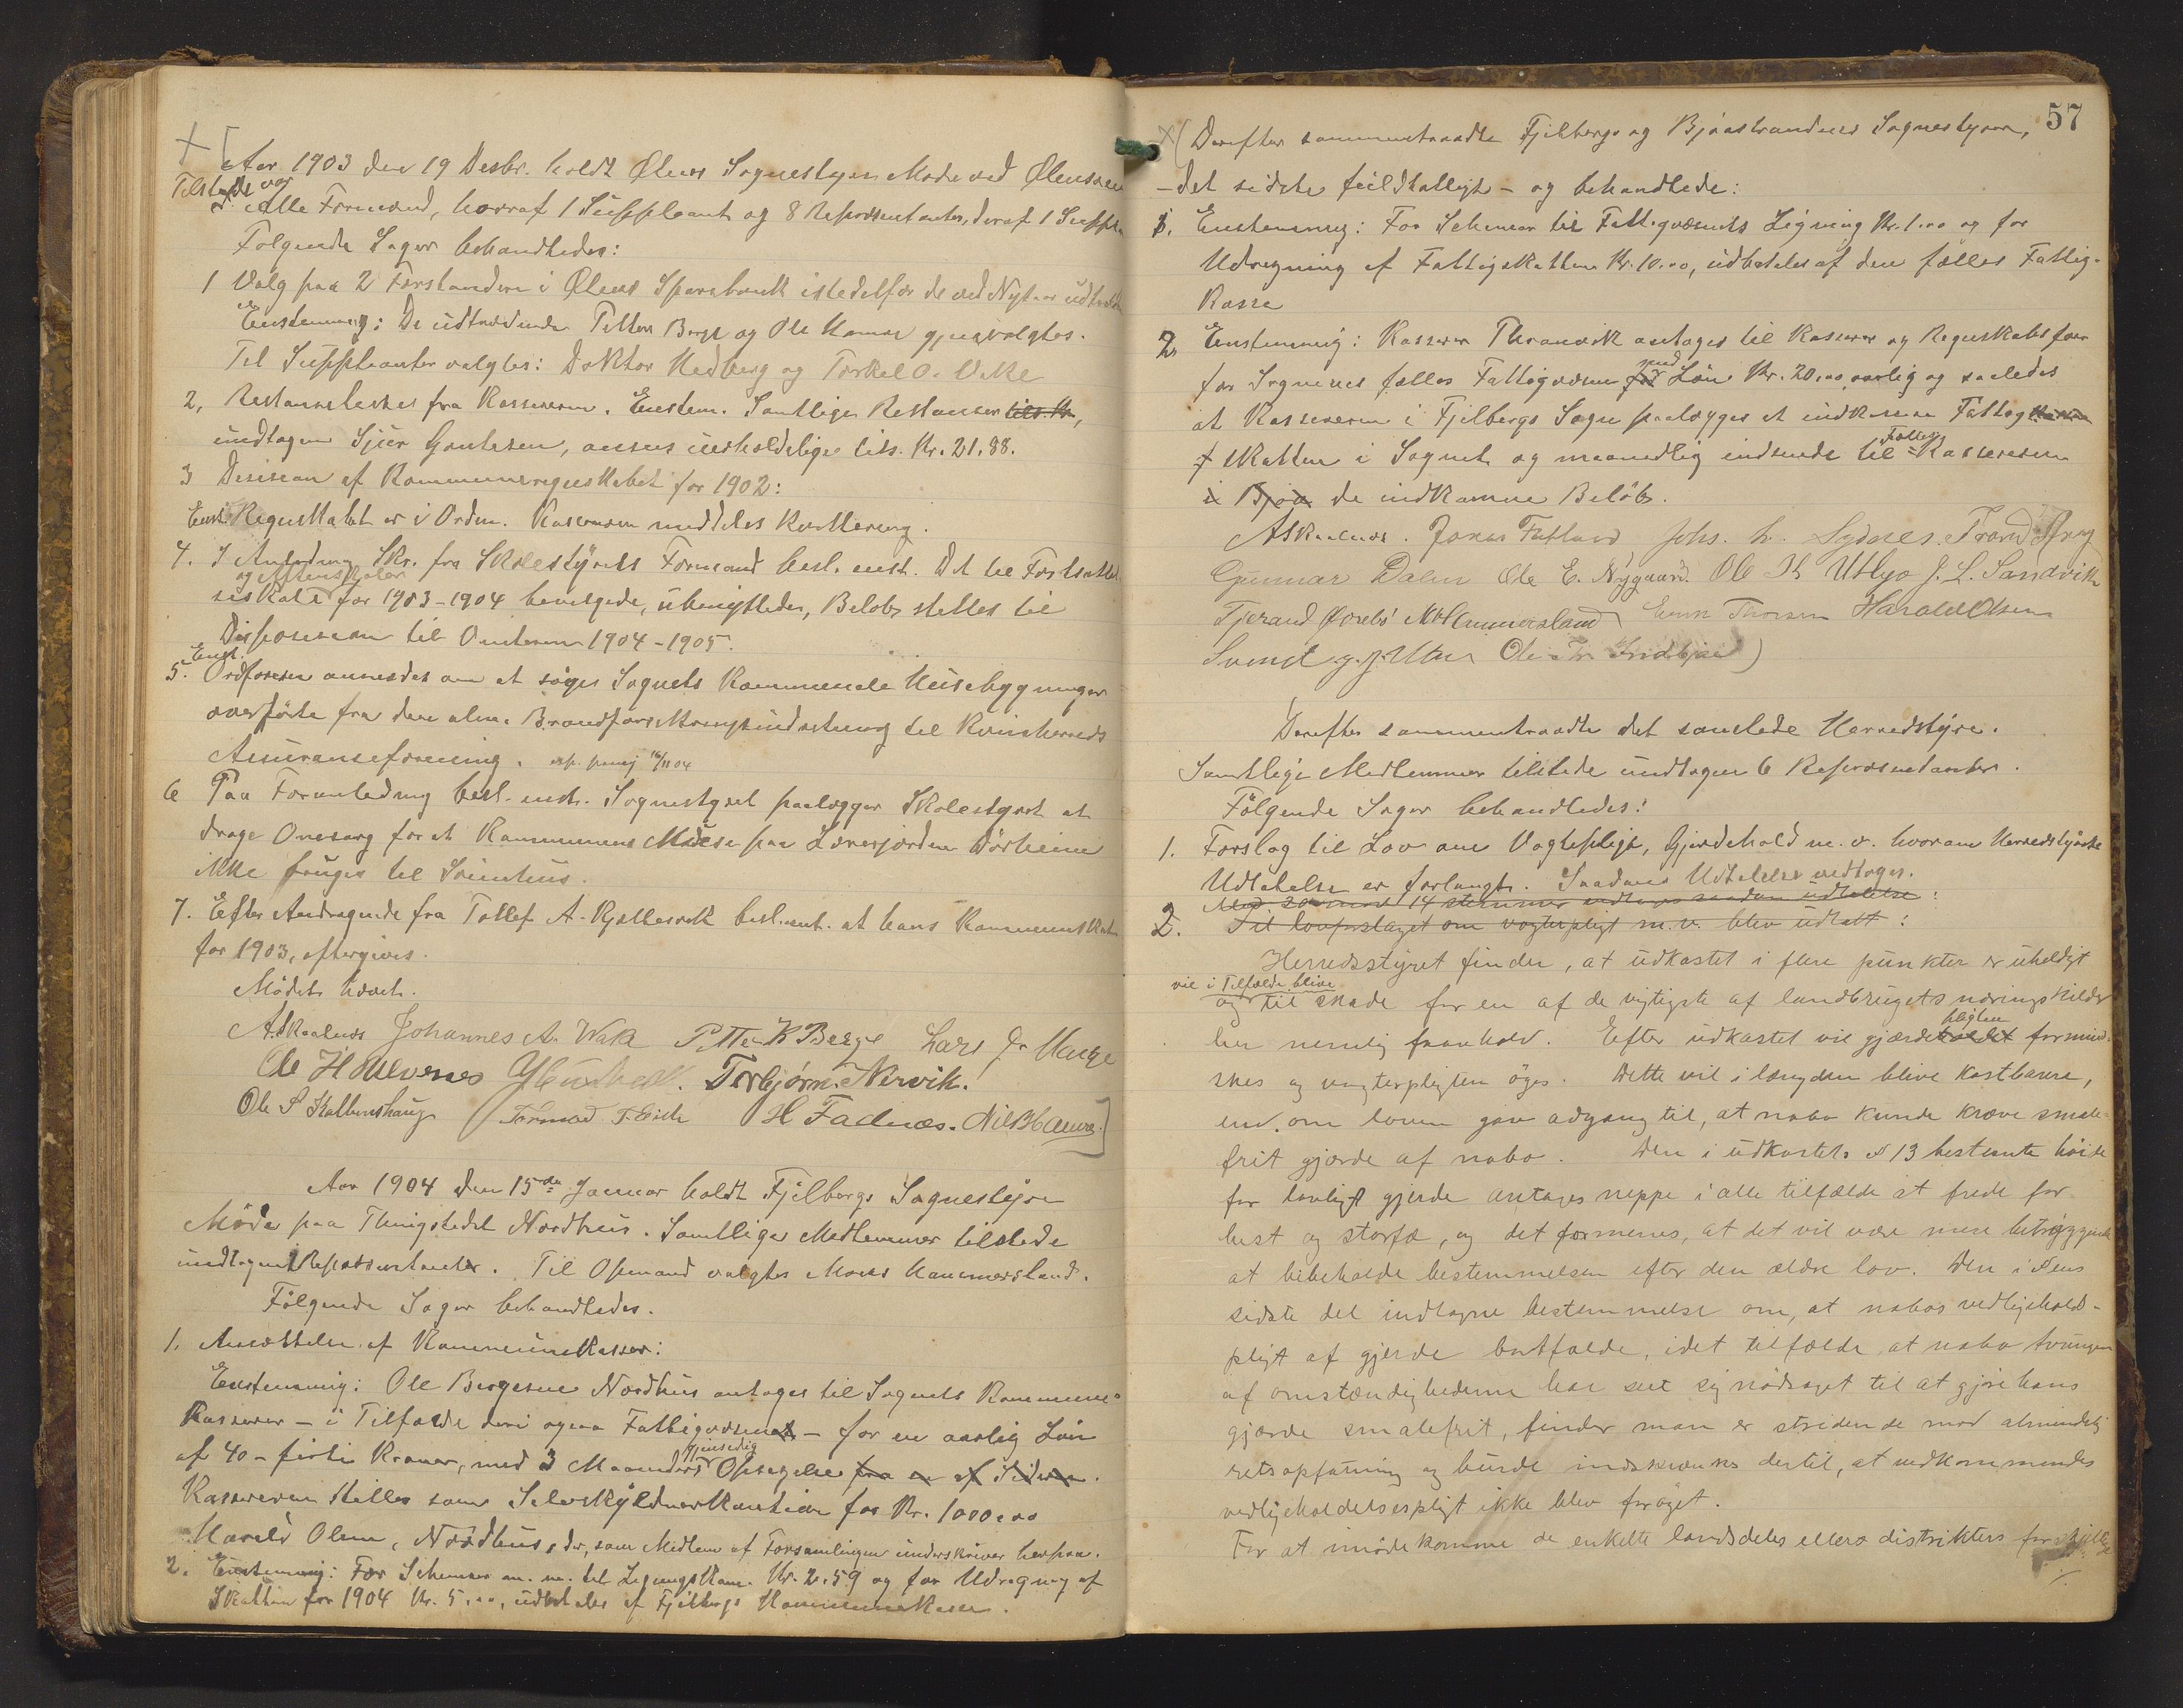 Aar 1903 den 19 Desbr. holdt Ølens Sognestyre Møde ved Ølensøen
Tilstede var
Alle Formænd, hvoraf 1 Suppleant og 8 Repræsentanter, deraf 1 Supple
Følgende Sager behandledes:
1 Valg paa 2 Forstandere i Ølens Sparebank istedetfor de ved Nytaar udtrædende
Enstemmig: De udtrædende Petter Berge og Ole Hamre gjenvalgtes.
Til Suppleanter valgtes: Doktor Hedberg og Torkel O. Vake
2, Restanselister fra Kassereren. Enstem. Samtlige Restanser tils. Kr,
undtagen Sjur Gautesen, ansees uerholdelige tils. Kr. 21.88.
3 Desision af Kommuneregnskabet for 1902:
Enst. Regnskabet er i Orden. Kassereren meddeles Kvittering.
4. I Anledning Skr. fra Skolestyrets Formand besl. enst. Det til Fortsættel-
og Aftenskoler
sesskole for 1903-1904 bevilgede, ubenyttede, Beløb stilles til
Disposision til Vinteren 1904-1905.
Enst.
5. Ordføreren anmodes om at søge Sognets kommunale Husebygninger
overførte fra den alm. Brandforsikringsindretning til Kvinherreds
Assuranseforening. 16/1 04
6 Paa Foranledning besl. enst. Sognestyret paalægger Skolestyret at
drage Omsorg for at Kommunens Huse paa Lærerjorden Dørheim
ikke bruges til
7. Efter Andragende fra Tollef A. Kjøllesvik besl. ent. at hans Kommuneskat
for 1903, eftergives.
Mødet hævet.
A Skaalnes Johannes A. Vake Petter K Berge Lars J. Hauge
Ole H Halvenes Torbjørn Nervik.
Ole S Kalbenshaug Tormod T. Eide H Fadnæs. Nils Hamre
Aar 1904 den 15de Januar holdt Fjelbergs Sognestyre
Møde paa Thingstedet Nordhus. Samtlige Medlemmer tilstede
undtagen 1 Repræsentanter. Til Opmand valgtes Mons Hammersland.
Følgende Sager behandledes.
1. Ansættelse af Kommunekasser:
Enstemmig: Ole Bergesen Nordhus antages til Sognets Kommune-
Kasserer – i Tilfælde deri ogsaa Fattigvæsenet – for en aarlig Løn
gjensidig
af 40 – firti Kroner, med 3 Maaneders Opsigelse fra en af Siderne.
Kassereren stiller som Selvskyldnerkaution for Kr. 1000.00
Harald Olsen, Nordhus, der, som Medlem af Forsamlingen underskriver herpaa.
2. Enstemmig: For Schemaer m. m. til Ligningskom. Kr. 2.59 og for Udregning af
Skatten for 1904 Kr. 5.00, udbetales af Fjelbergs Kommunekasse.
57
Derefter sammentraadte Fjelbergs og Bjoastrandens Sognestyrer,
– det sidste fuldtalligt – og behandlede:
1. Enstemmig: For Schemaer til Fattigvæsenets Ligning Kr. 1.00 og for
Udregning af Fattigskatten Kr. 10.00, udbetales af den fælles Fattig-
kasse
2, Enstemmig: Kasserer Thranevik antages til Kasserer og Regnskabsfører
mod
for Sognenes fælles Fattigvæsen for Løn Kr. 20.00 aarlig og saaledes
at Kassereren i Fjelbergs Sogn paalægges at indkræve Fattig
skatten i Sognet og maanedlig indsende til Kassereren
Fattig
i Bjoa de indkomne Beløb.
A Skaalnes. Jonas Fatland Johs. L. Sydnes. Trond
Gunnar Dalen Ole E. Nygaard. Ole Th Utbjo J. L. Sandvik
Tjerand Ørebø M Hammersland Thorsen Harald Olsen
Svend g. J. Utne Ole Tr. Indbjoe
Derefter sammentraadte det samlede Herredstyre.
Samtlige Medlemmer tilstede undtagen 6 Repræsentanter.
Følgende Sager behandledes:
1. Forslag til Lov om Vogtepligt, Gjerdehold m. v. hvorom Herredstyrets
Udtalelse er forlangt. Saadan Udtalelse vedtoges.
Med 20 mod 14 stemmer vedtoges saadan udtalelse:
2. Til lovforslaget om vogterpligt m.v. blev udtalt:
Herredsstyret finder, at udkastet i flere punkter er uheldigt
vil i Tilfælde blive
og til skade for en af de vigtigste af landbrugets næringskilder
pligten
her nemlig faarehold. Efter udkastet vil gjærdeholdet formind-
skes og vogterpligten øges. Dette vil i længden blive kostbarere,
end om loven gav adgang til, at nabo kunde kræve smale-
frit gjærde af nabo. Den i udkastets § 13 bestemte høide
for lovligt gjerde antages neppe i alle tilfælde at frede for
hest og storfæ, og det formenes, at det vil være mere betryggende
at bibeholde bestemmelsen efter den ældre lov. Den i §ens
sidste del indtagne bestemmelse om, at nabos vedligeholds-
pligt af gjerde bortfalde, i det tilfælde at nabo tvungen
af omstændighederne har seet sig nødsaget til at gjøre hans
gjærde smalefrit, finder man er stridende mod almindelig
retsopfatning og burde indskrænkes dertil, at vedkommendes
vedligeholdelsespligt ikke blev forøget.
For at imødekomme de enkelte landsdeles ellers distrikters forskjellige